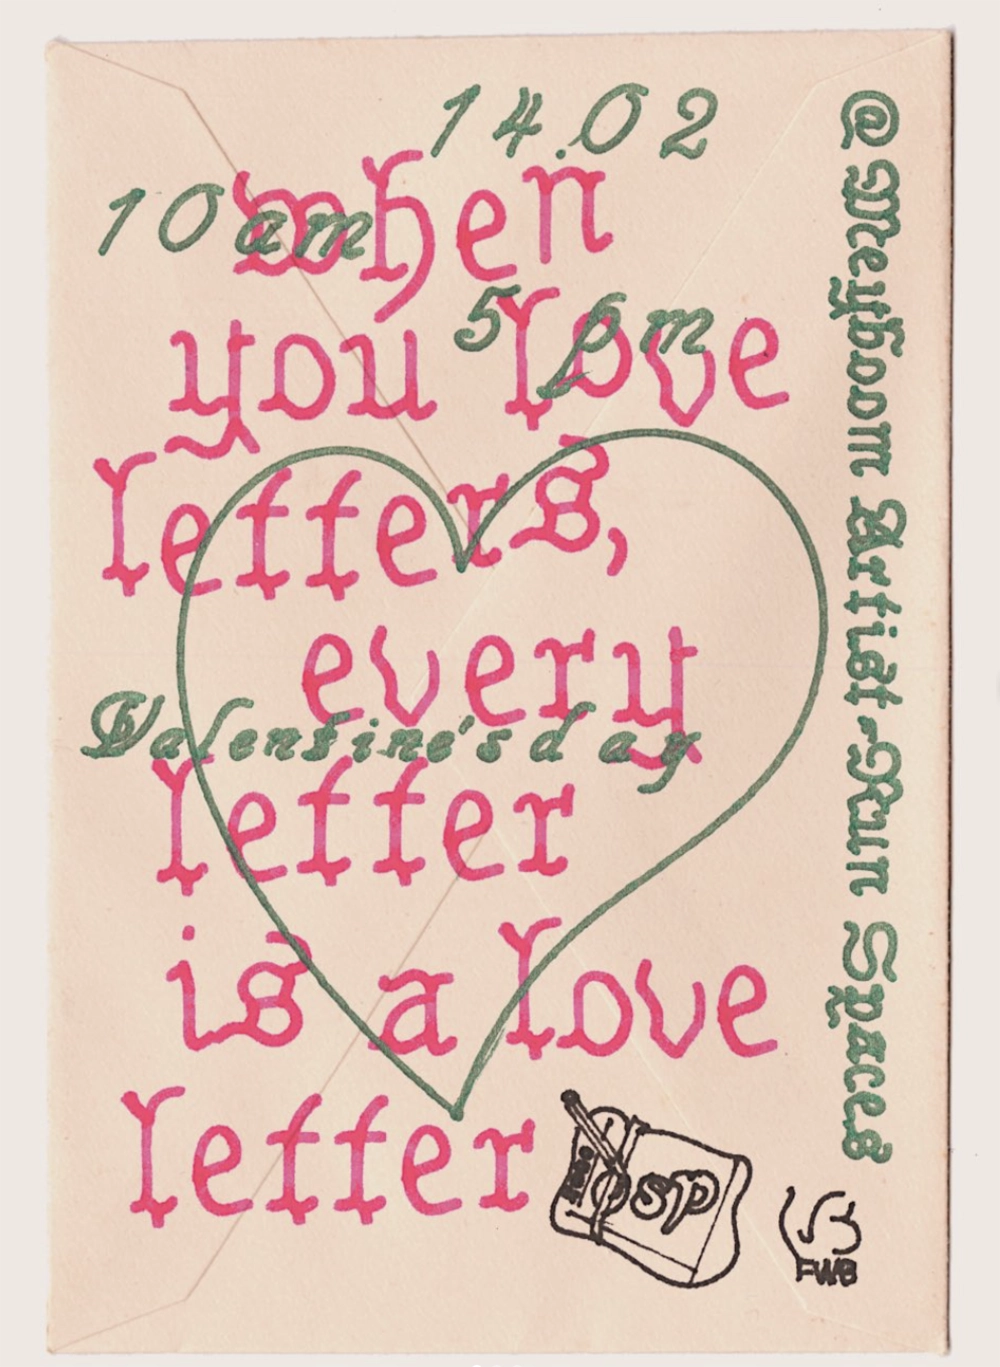 14.02
10am
5pm
when
you love
letters,
every
Valentine's day
letter
is a love
letter
@Meyboom Artist-Run Spaces
osp
FWB